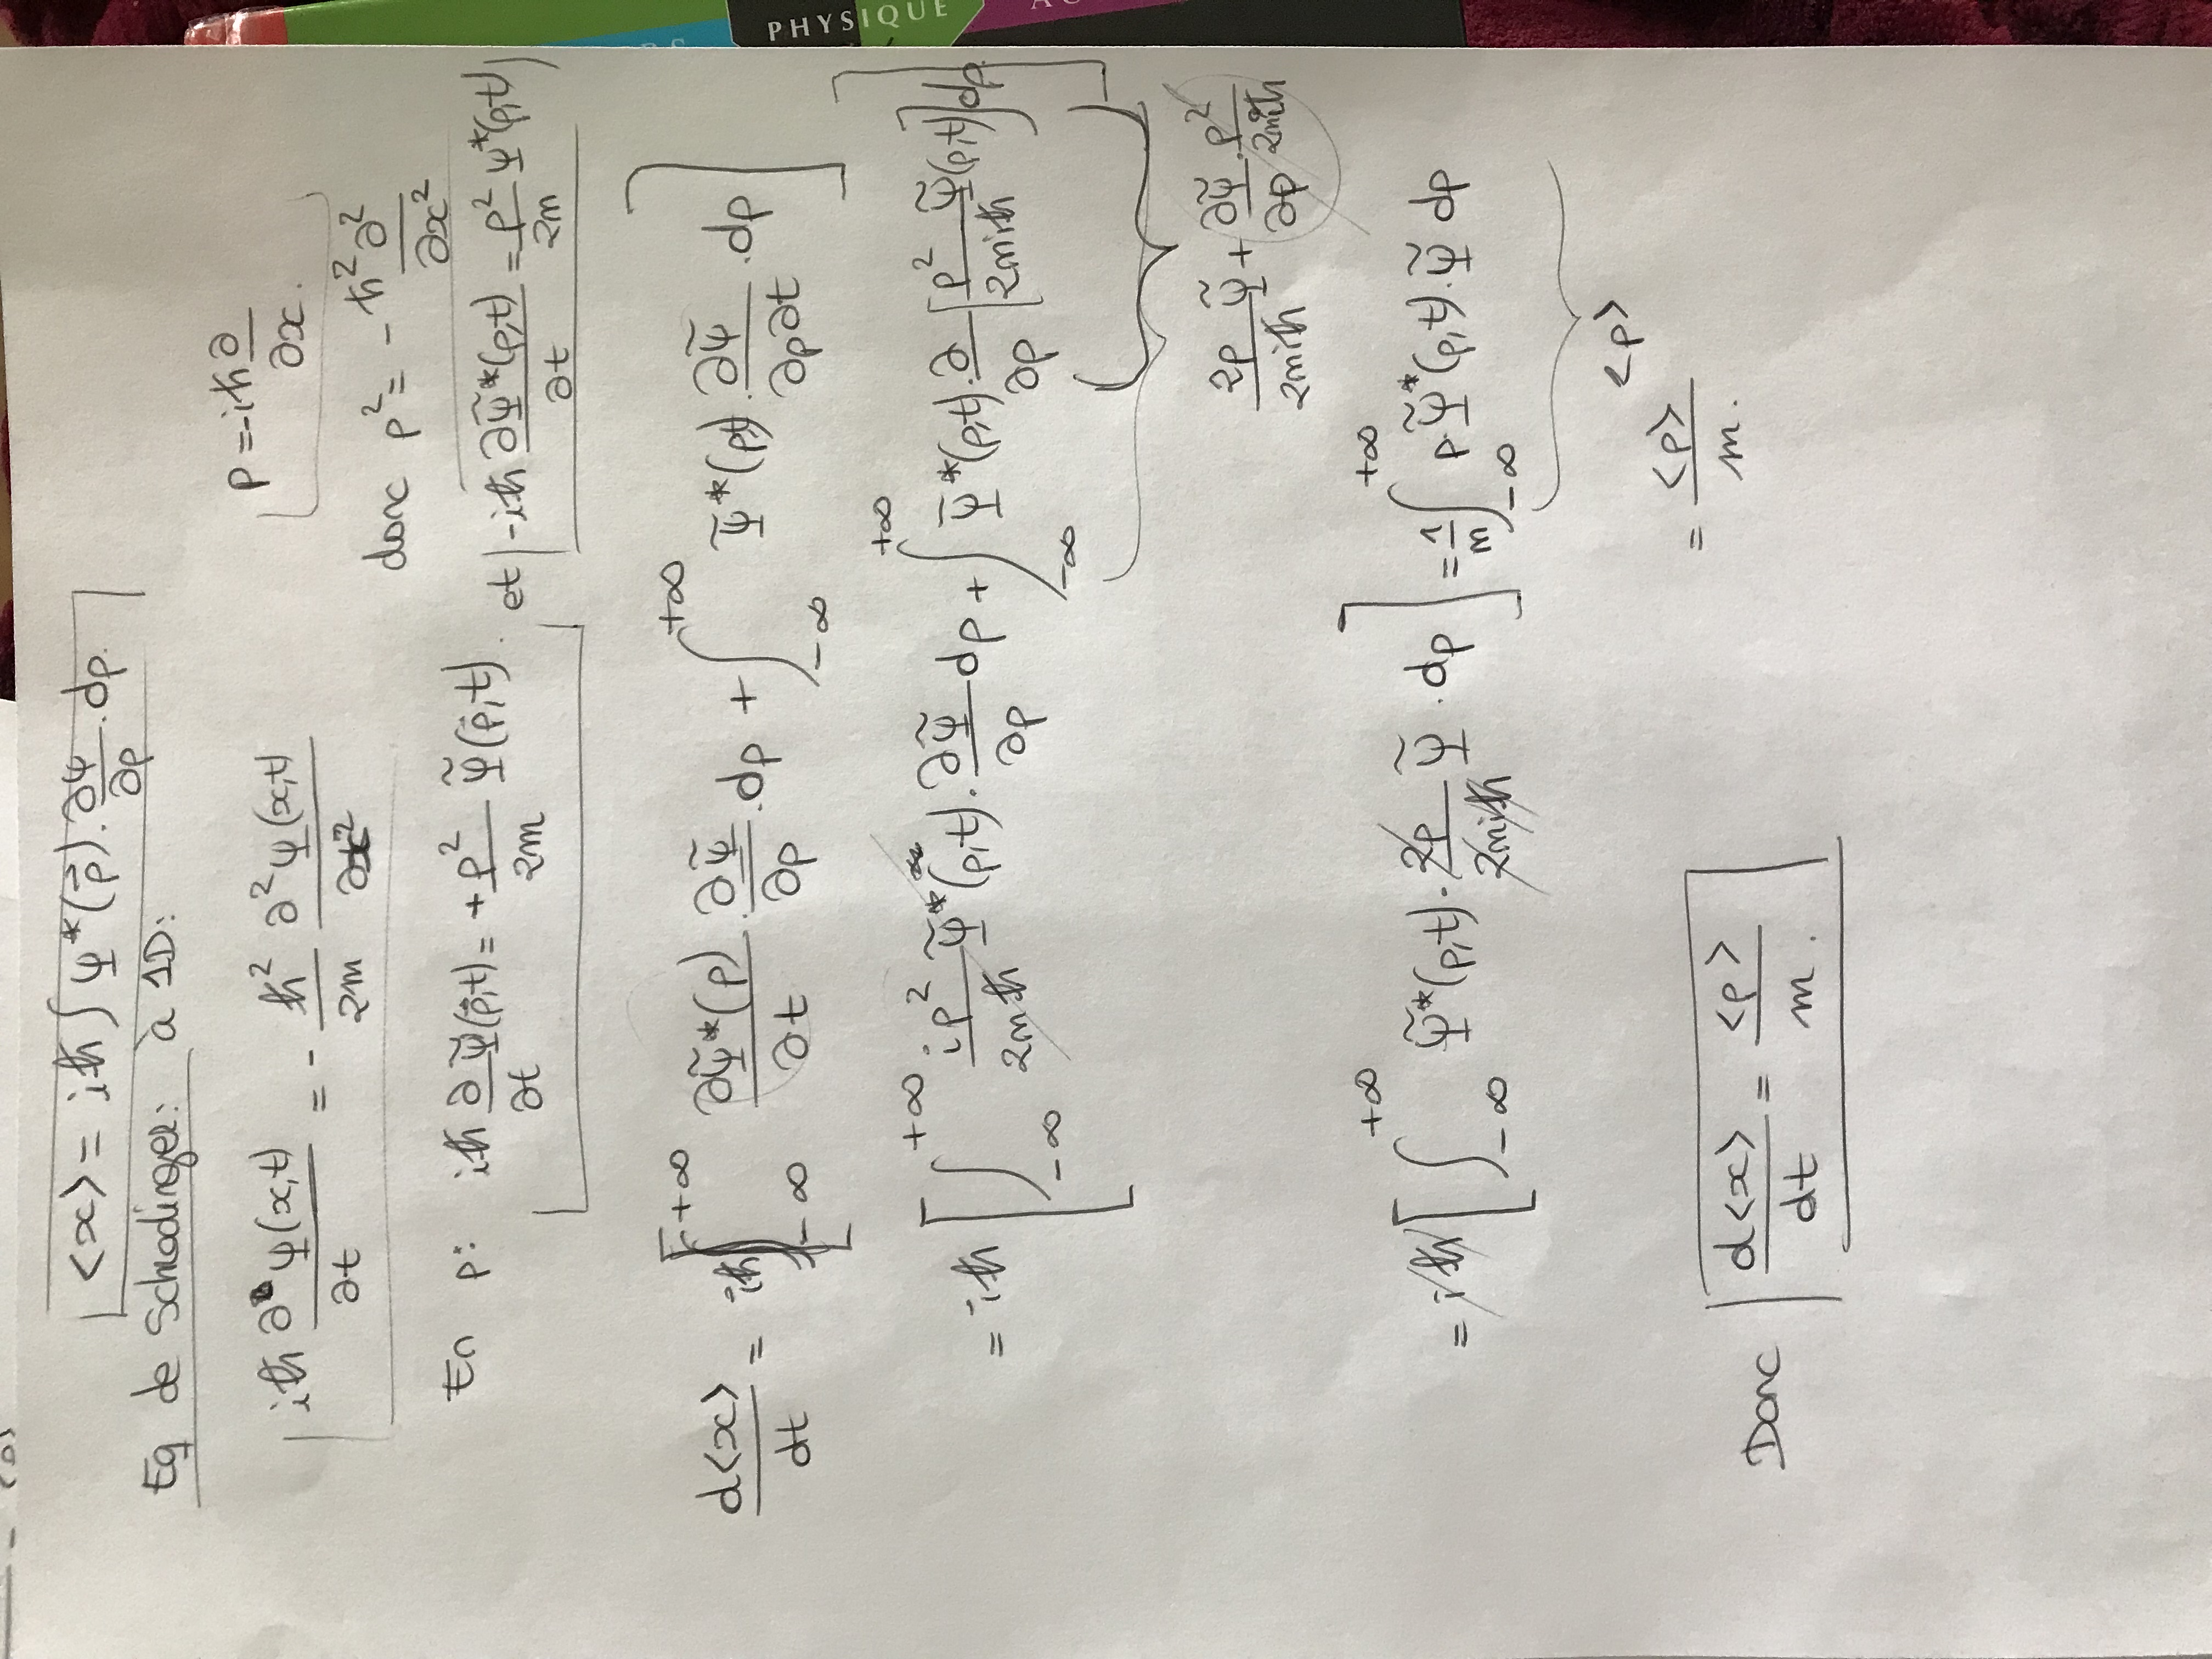 <x> = iħ ∫ Ψ*(p⃗) . ∂Ψ/∂p . dp.
Eq de Schrodinger: à 1D:
iħ ∂Ψ(x,t)/∂t = - ħ²/2m ∂²Ψ(x,t)/∂x²
p = -iħ ∂/∂x .
donc p² = - ħ² ∂²/∂x²
En p: iħ ∂/∂t Ψ̃(p⃗,t) = + p²/2m Ψ̃(p⃗,t) . et -iħ ∂Ψ̃*(p,t)/∂t = p²/2m Ψ*(p,t)
d<x>/dt = iħ [ ∫_{-∞}^{+∞} ∂Ψ̃*(p)/∂t . ∂Ψ̃/∂p . dp + ∫_{-∞}^{+∞} Ψ̃*(p,t) . ∂Ψ̃/∂p∂t . dp ]
= iħ [ ∫_{-∞}^{+∞} ip²/2mħ Ψ̃*(p,t) . ∂Ψ̃/∂p dp + ∫_{-∞}^{+∞} Ψ̃*(p,t) . ∂/∂p [ p²/2miħ Ψ̃(p,t) ] dp ]
2p/2miħ Ψ̃ + ∂Ψ̃/∂p . p²/2miħ
= iħ [ ∫_{-∞}^{+∞} Ψ̃*(p,t) . 2p/2miħ Ψ̃ . dp ] = 1/m ∫_{-∞}^{+∞} p.Ψ̃*(p,t) . Ψ̃ dp
<p>
= <p>/m .
Donc d<x>/dt = <p>/m .
PHYSIQUE